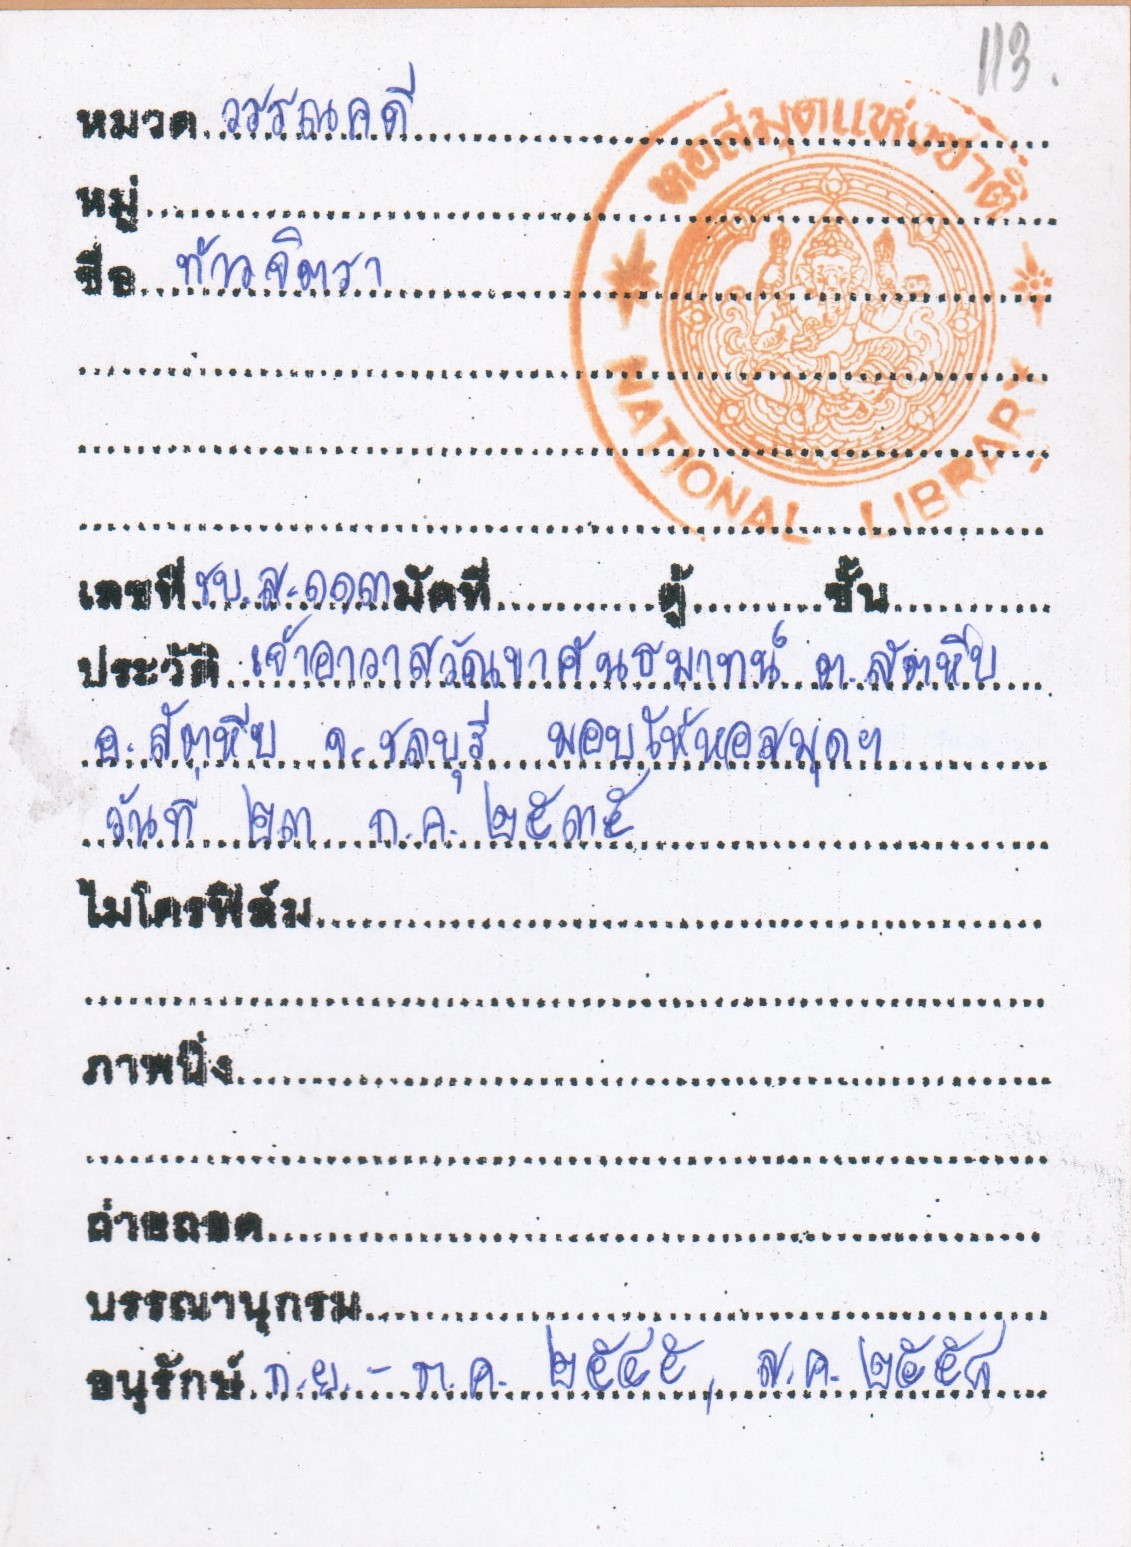 113.
หมวด วรรณคดี
หอสมุดแห่งชาติ
หมู่
ชื่อ ท้าวจิตรา
NATIONAL LIBRARY
เลขที่ ชบ.ส.๑๑๓ มัดที่ ตู้ ชั้น
ประวัติ เจ้าอาวาสวัดเขาคันธมาทน์ ต.สัตหีบ
อ.สัตหีบ จ.ชลบุรี มอบให้หอสมุดฯ
วันที่ ๒๓ ก.ค. ๒๕๓๕
ไมโครฟิล์ม
ภาพนิ่ง
ถ่ายถอด
บรรณานุกรม
อนุรักษ์ ก.ย.- ต.ค. ๒๕๔๕, ส.ค. ๒๕๕๘